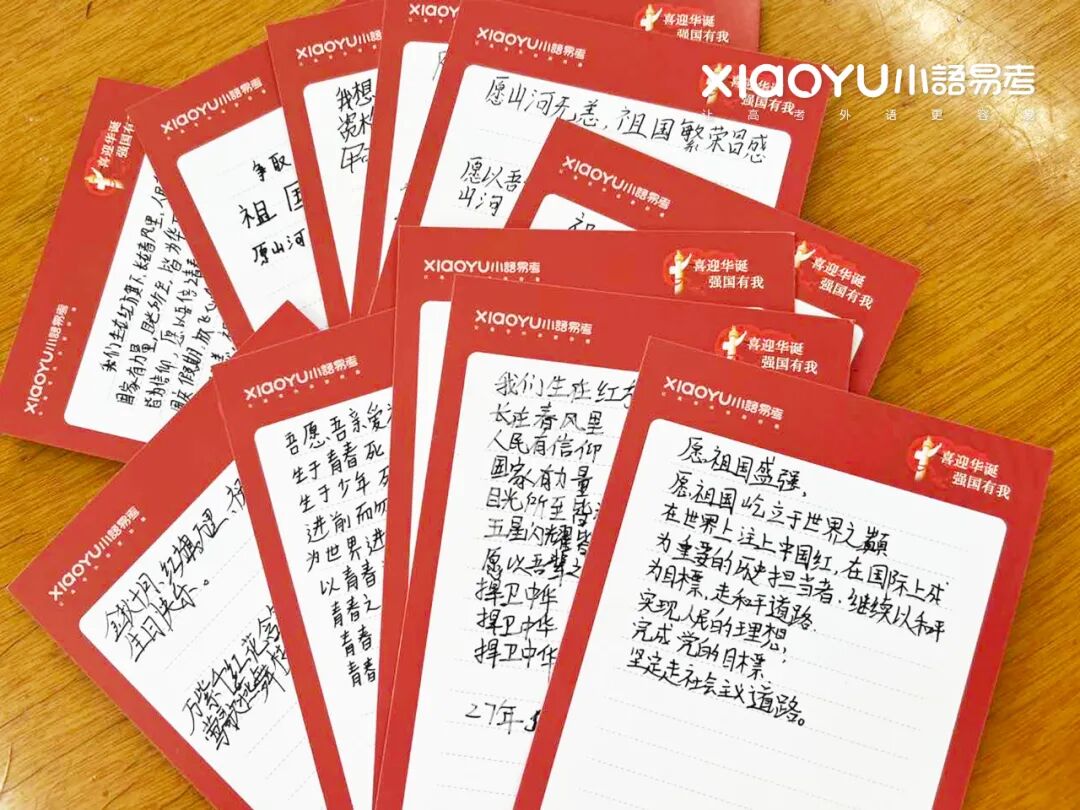 XIAOYU小語易考
让高考外语更容易
喜迎华诞
强国有我
XIAOYU小語易考
愿山河无恙，祖国繁荣昌盛
愿以吾
山河
XIAOYU小語易考
喜迎华诞
强国有我
XIAOYU小語易考
我想
XIAOYU小語易考
争取
祖国
愿山河
喜迎华诞
强国有我
XIAOYU小語易考
我们生在红旗下，长在春风里，人民
国家有力量，目光所至，皆为华
皆为信仰，愿以吾辈青春
XIAOYU小語易考
喜迎华诞
强国有我
XIAOYU小語易考
喜迎华诞
强国有我
XIAOYU小語易考
金秋十月，红旗飘
生日快乐。
万紫千红
莺歌
XIAOYU小語易考
吾愿吾亲爱
生于青春死
生于少年死
进前而勿
为世界进
以青春
青春之
青春
青春
XIAOYU小語易考
喜迎华诞
强国有我
我们生在红
长在春风里
人民有信仰
国家有力量
目光所至皆
五星闪耀皆
愿以吾辈之
捍卫中华
捍卫中华
捍卫中华
27年
XIAOYU小語易考
喜迎华诞
强国有我
愿祖国盛强，
愿祖国屹立于世界之巅
在世界上注上中国红，在国际上成
为重要的历史担当者，继续以和平
为目标，走和平道路．
实现人民的理想，
完成党的目标
坚定走社会主义道路。